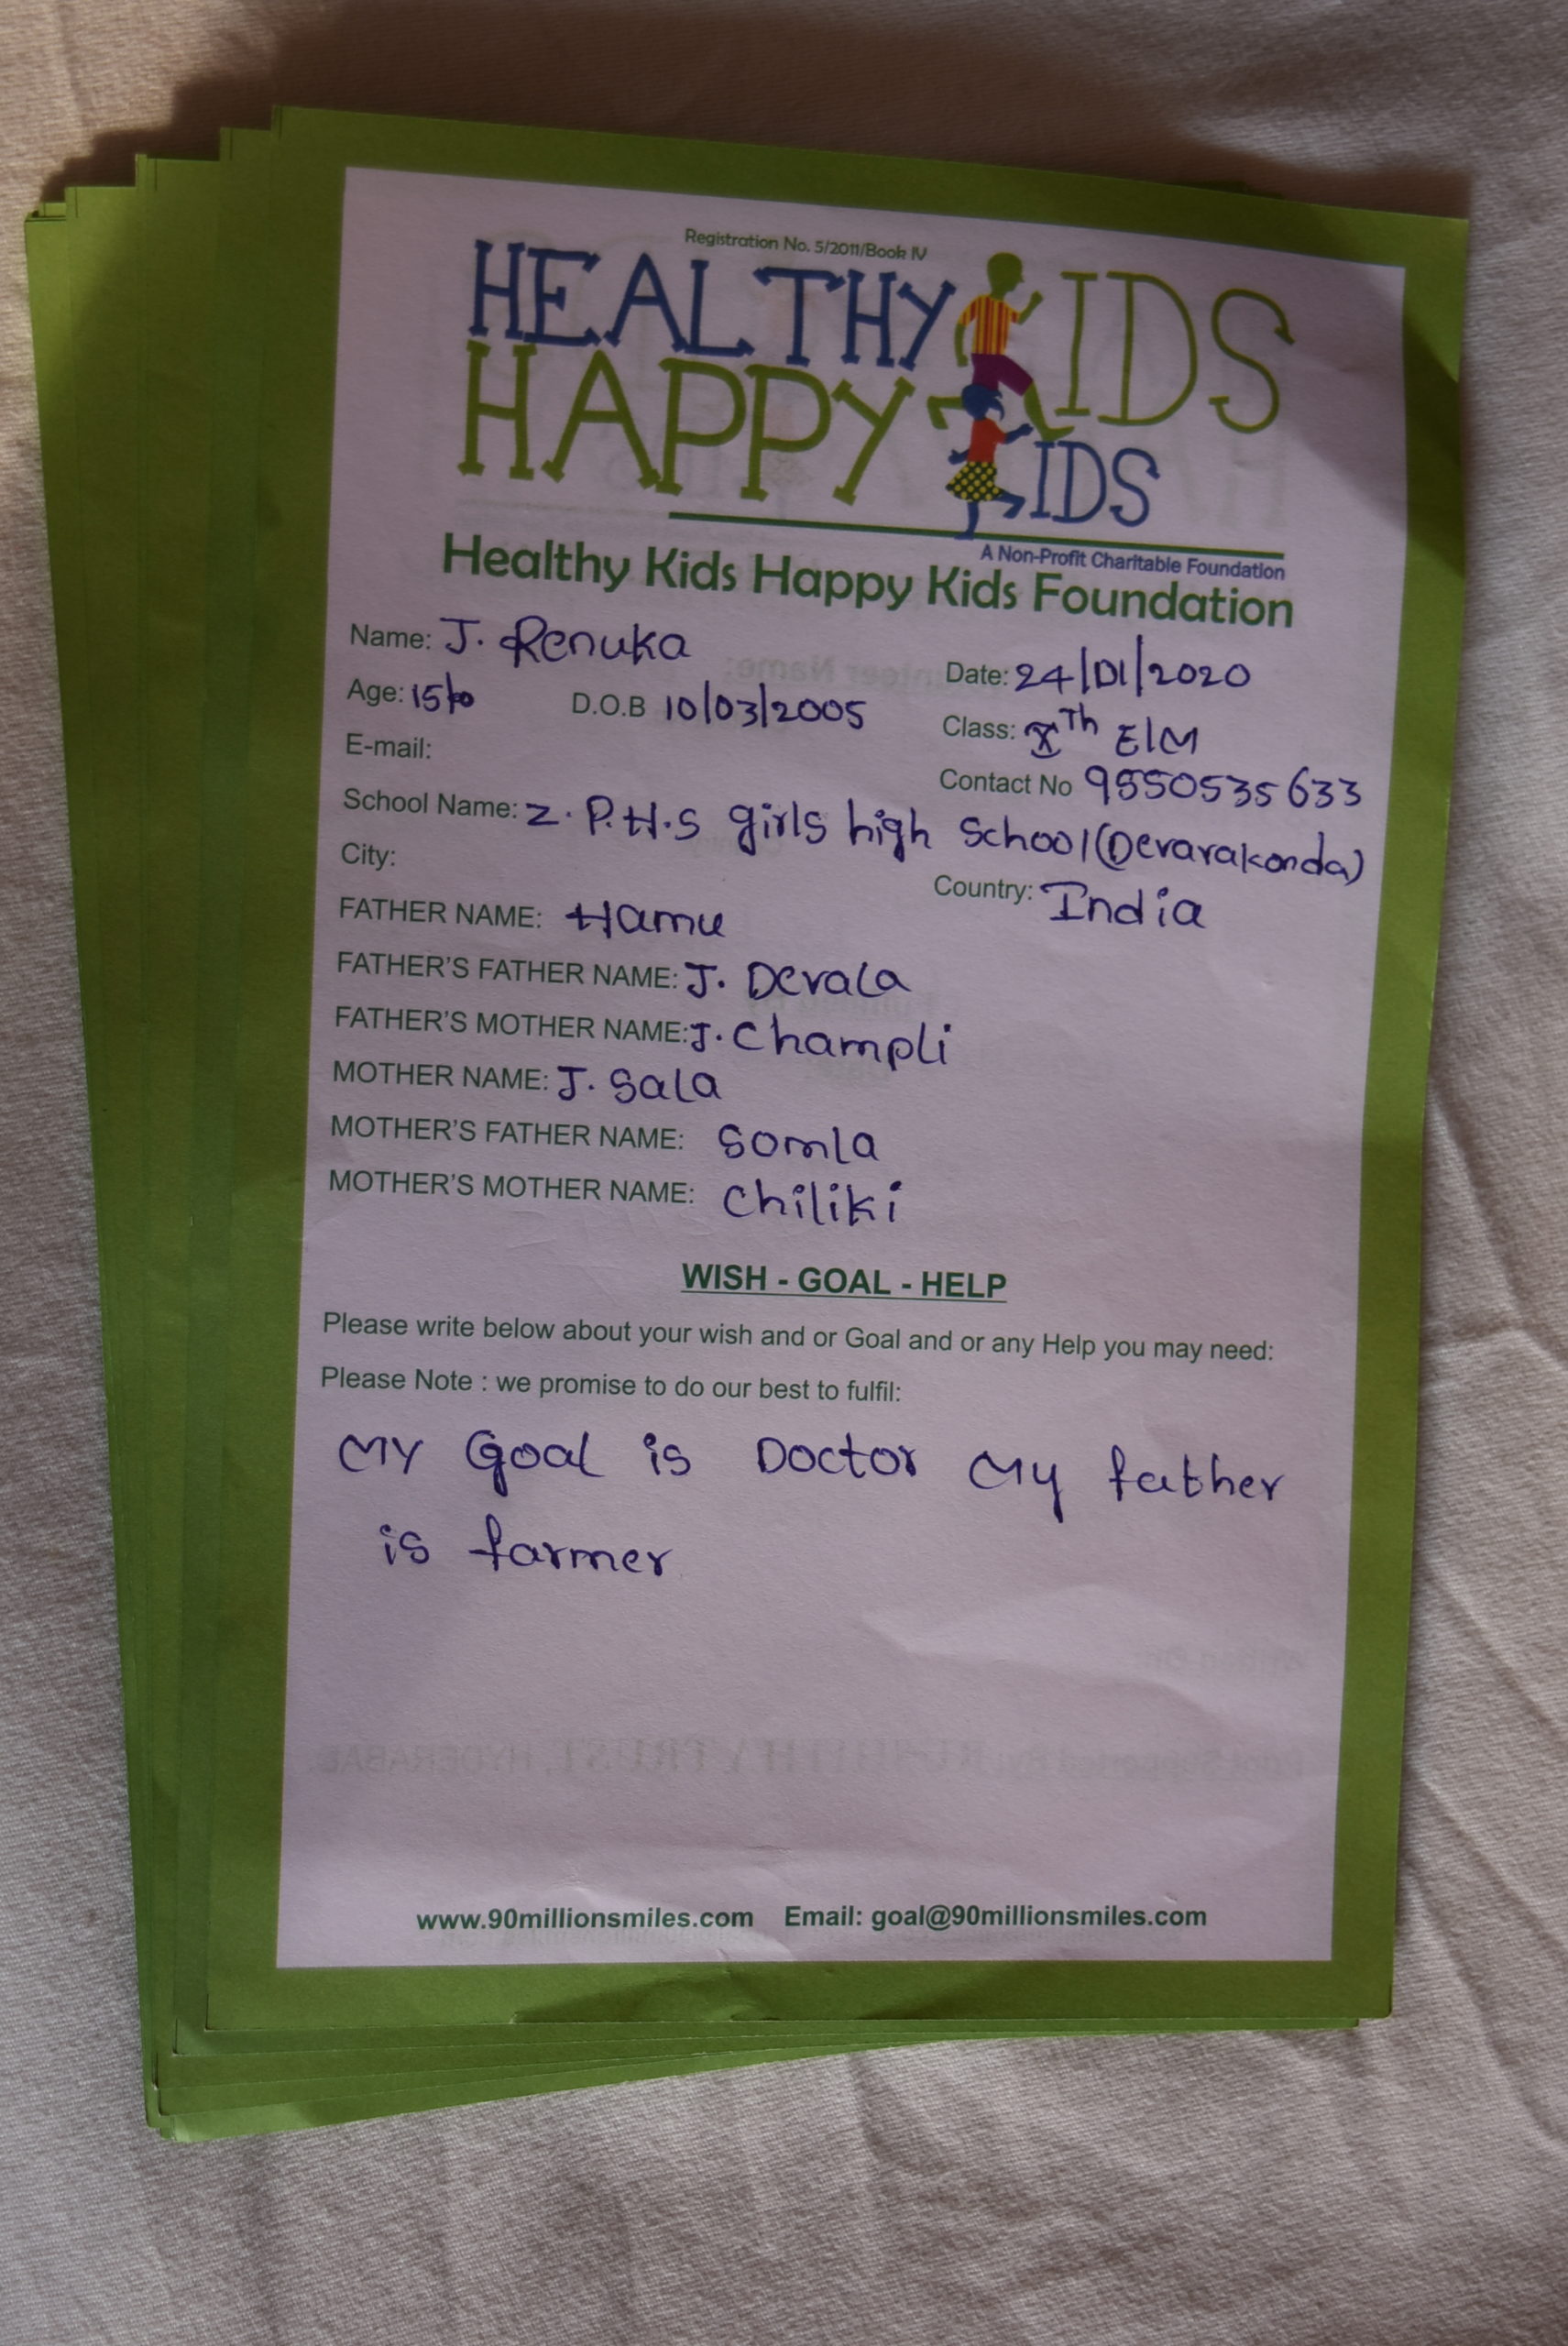 Registration No. 5/2011/Book IV
HEALTHY KIDS
HAPPY KIDS
A Non-Profit Charitable Foundation
Healthy Kids Happy Kids Foundation
Name: J. Renuka
Date: 24/01/2020
Age: 15
D.O.B 10/03/2005
Class: Xth E/M
E-mail:
Contact No 9550535633
School Name: Z. P.H.S girls high School (Devarakonda)
City:
Country: India
FATHER NAME: Hamu
FATHER'S FATHER NAME: J. Devala
FATHER'S MOTHER NAME: J. Champli
MOTHER NAME: J. Sala
MOTHER'S FATHER NAME: Somla
MOTHER'S MOTHER NAME: Chiliki
WISH - GOAL - HELP
Please write below about your wish and or Goal and or any Help you may need:
Please Note : we promise to do our best to fulfil:
MY Goal is Doctor My father
is farmer
www.90millionsmiles.com Email: goal@90millionsmiles.com